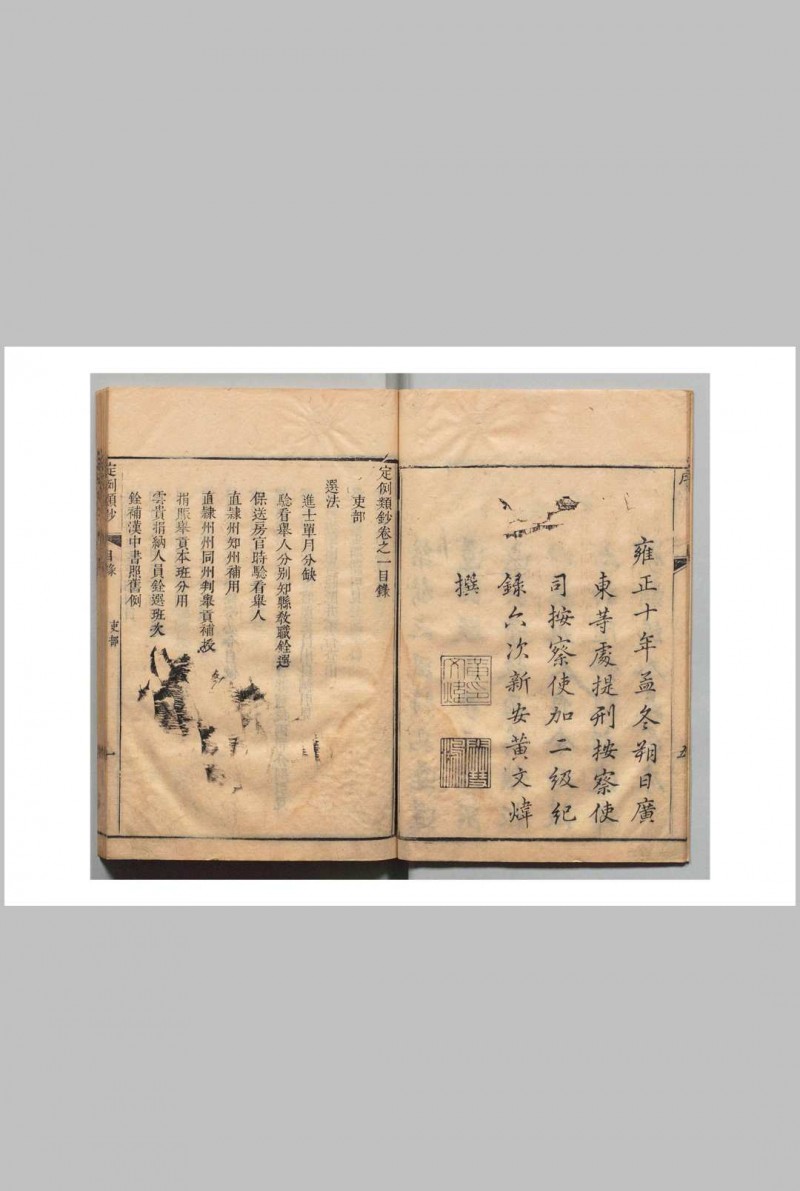 序
雍正十年孟冬朔日廣
東等處提刑按察使
司按察使加二級紀
錄六次新安黃文煒
撰
五
定例類鈔卷之一目錄
吏部
選法
進士單月分缺
驗看舉人分別知縣敎職銓選
保送房官時驗看舉人
直隸州知州補用
直隸州州同州判舉貢補授
捐賑舉貢本班分用
雲貴捐納人員銓選班次
銓補漢中書照舊例
定例類鈔
目錄
吏部
一